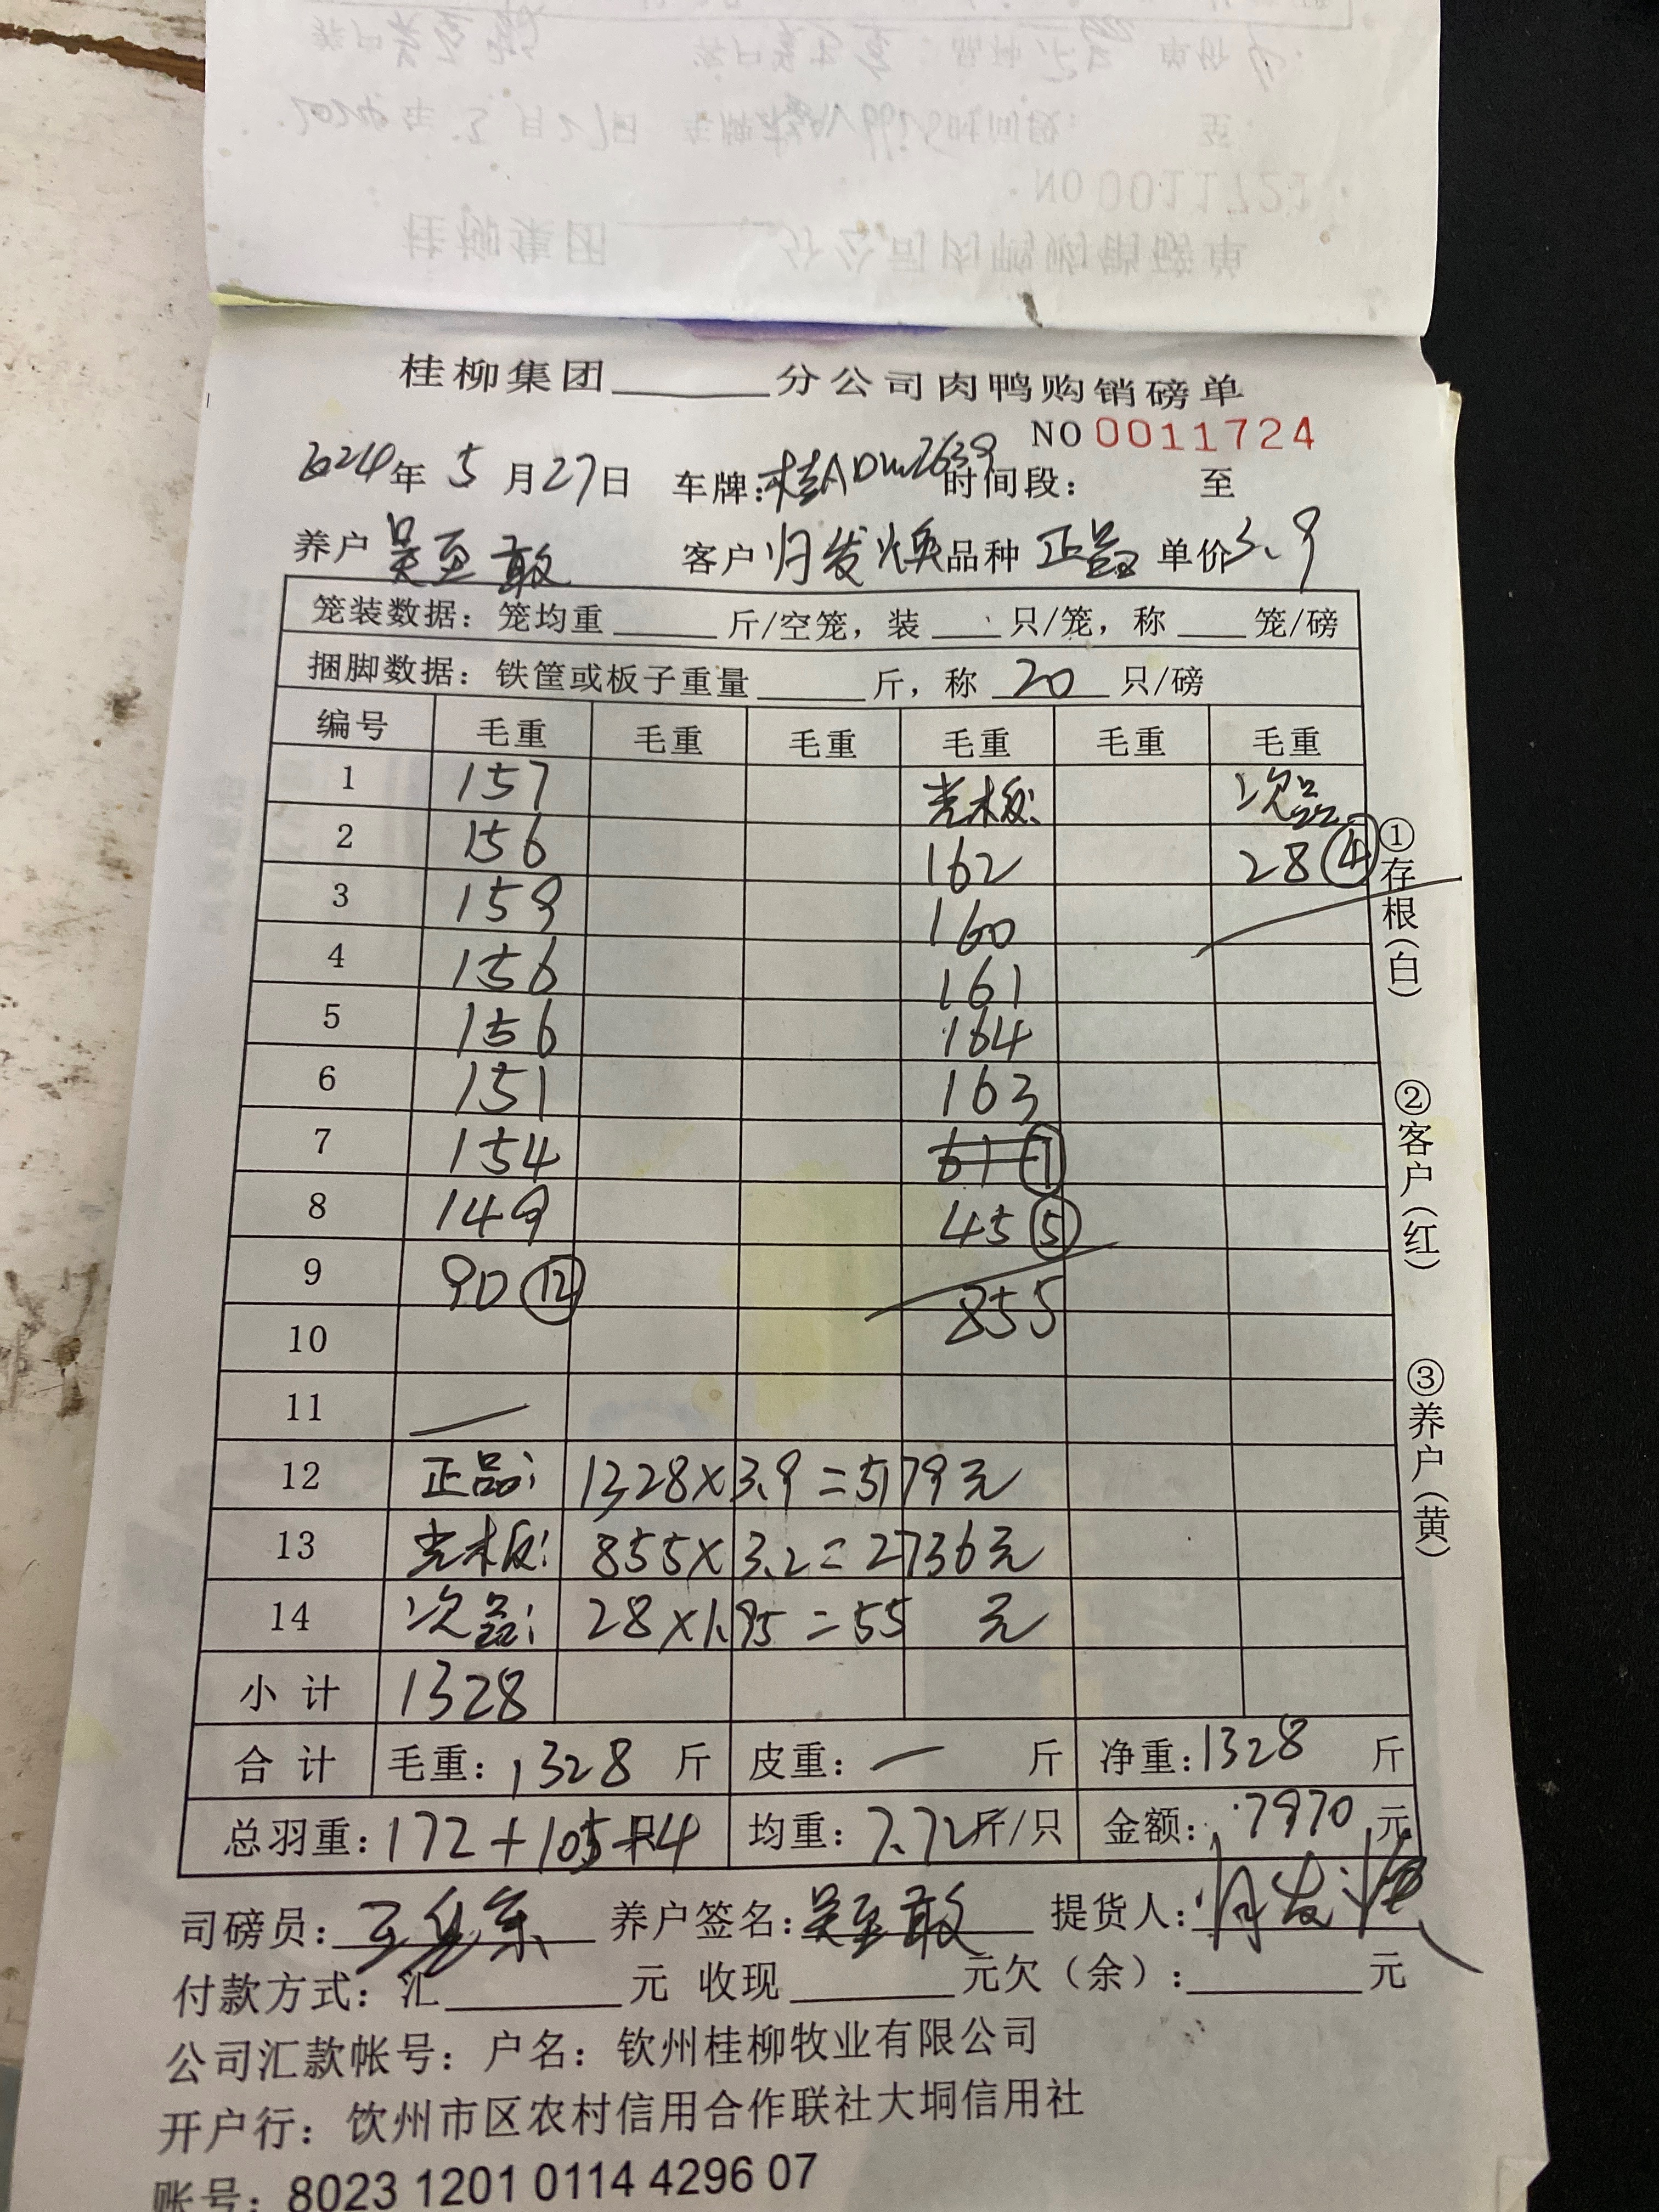 桂柳集团______分公司肉鸭购销磅单
NO 0011724
2024年 5月27日 车牌:桂ADW2639 时间段: 至
养户 吴至敢 客户 归发焕 品种 正品 单价3.9
笼装数据：笼均重______斤/空笼，装____只/笼，称____笼/磅
捆脚数据：铁筐或板子重量______斤，称 20 只/磅
编号 毛重 毛重 毛重 毛重 毛重 毛重
1 157 光板: 次品
2 156 162 28 ④
3 159 160
4 156 161
5 156 164
6 151 163
7 154 61 ⑦
8 149 45 ⑤
9 90 ⑫
10 855
11 —
12 正品: 1328×3.9=5179元
13 光板: 855×3.2=2736元
14 次品: 28×1.95=55 元
小计 1328
合计 毛重: 1328 斤 皮重: — 斤 净重: 1328 斤
总羽重: 172+105+4只 均重: 7.72斤/只 金额: 7970元
司磅员: 养户签名: 吴至敢 提货人:
付款方式：汇______元 收现______元欠（余）:______元
公司汇款帐号：户名：钦州桂柳牧业有限公司
开户行：钦州市区农村信用合作联社大垌信用社
账号：8023 1201 0114 4296 07
①存根(白)
②客户(红)
③养户(黄)